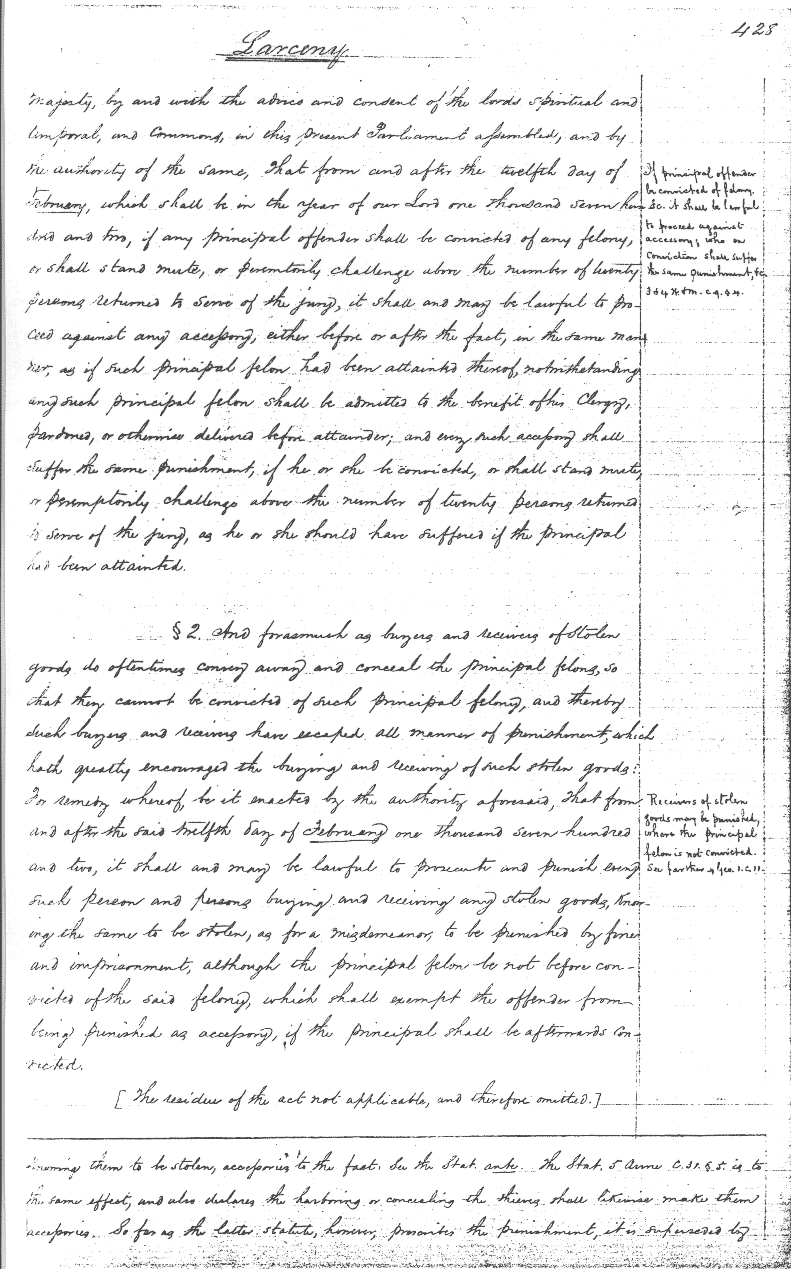 428
Larceny.
Majesty, by and with the advice and consent of the lords spiritual and
temporal, and Commons, in this present Parliament assembled, and by
the authority of the same, That from and after the twelfth day of
February, which shall be in the year of our Lord one thousand seven hun-
dred and two, if any principal offender shall be convicted of any felony,
or shall stand mute, or peremtorily challenge above the number of twenty
persons returned to serve of the jury, it shall and may be lawful to pro-
ceed against any accessory, either before or after the fact, in the same man-
ner, as if such principal felon had been attainted thereof, notwithstanding
any such principal felon shall be admitted to the benefit of his Clergy,
pardoned, or otherwise delivered before attainder; and every such accessory shall
suffer the same punishment, if he or she be convicted, or shall stand mute,
or peremptorily challenge above the number of twenty persons returned
to serve of the jury, as he or she should have suffered if the principal
had been attainted.
If principal offender
be convicted of felony
&c. it shall be lawful
to proceed against
accessory, who on
conviction shall suffer
the same punishment, &c.
3 & 4 W. & M. c. 9. § 4.
§ 2. And forasmuch as buyers and receivers of stolen
goods do oftentimes convey away and conceal the principal felons, so
that they cannot be convicted of such principal felony, and thereby
such buyers and receivers have escaped all manner of punishment, which
hath greatly encouraged the buying and receiving of such stolen goods:
For remedy whereof, be it enacted by the authority aforesaid, That from
and after the said twelfth day of February one thousand seven hundred
and two, it shall and may be lawful to prosecute and punish every
such person and persons buying and receiving any stolen goods, know-
ing the same to be stolen, as for a misdemeanor, to be punished by fine
and imprisonment, although the principal felon be not before con-
victed of the said felony, which shall exempt the offender from
being punished as accessory, if the principal shall be afterwards con-
victed.
Receivers of stolen
goods may be punished,
where the principal
felon is not convicted.
See farther 4 Geo. 1. c. 11.
[The residue of the act not applicable, and therefore omitted.]
knowing them to be stolen, accessories to the fact. See the Stat. ante. The Stat. 5 Anne c. 31. § 5. is to
the same effect, and also declares the harboring or concealing the thieves shall likewise make them
accessories. So far as the latter statute, however, prescribes the punishment, it is superseded by